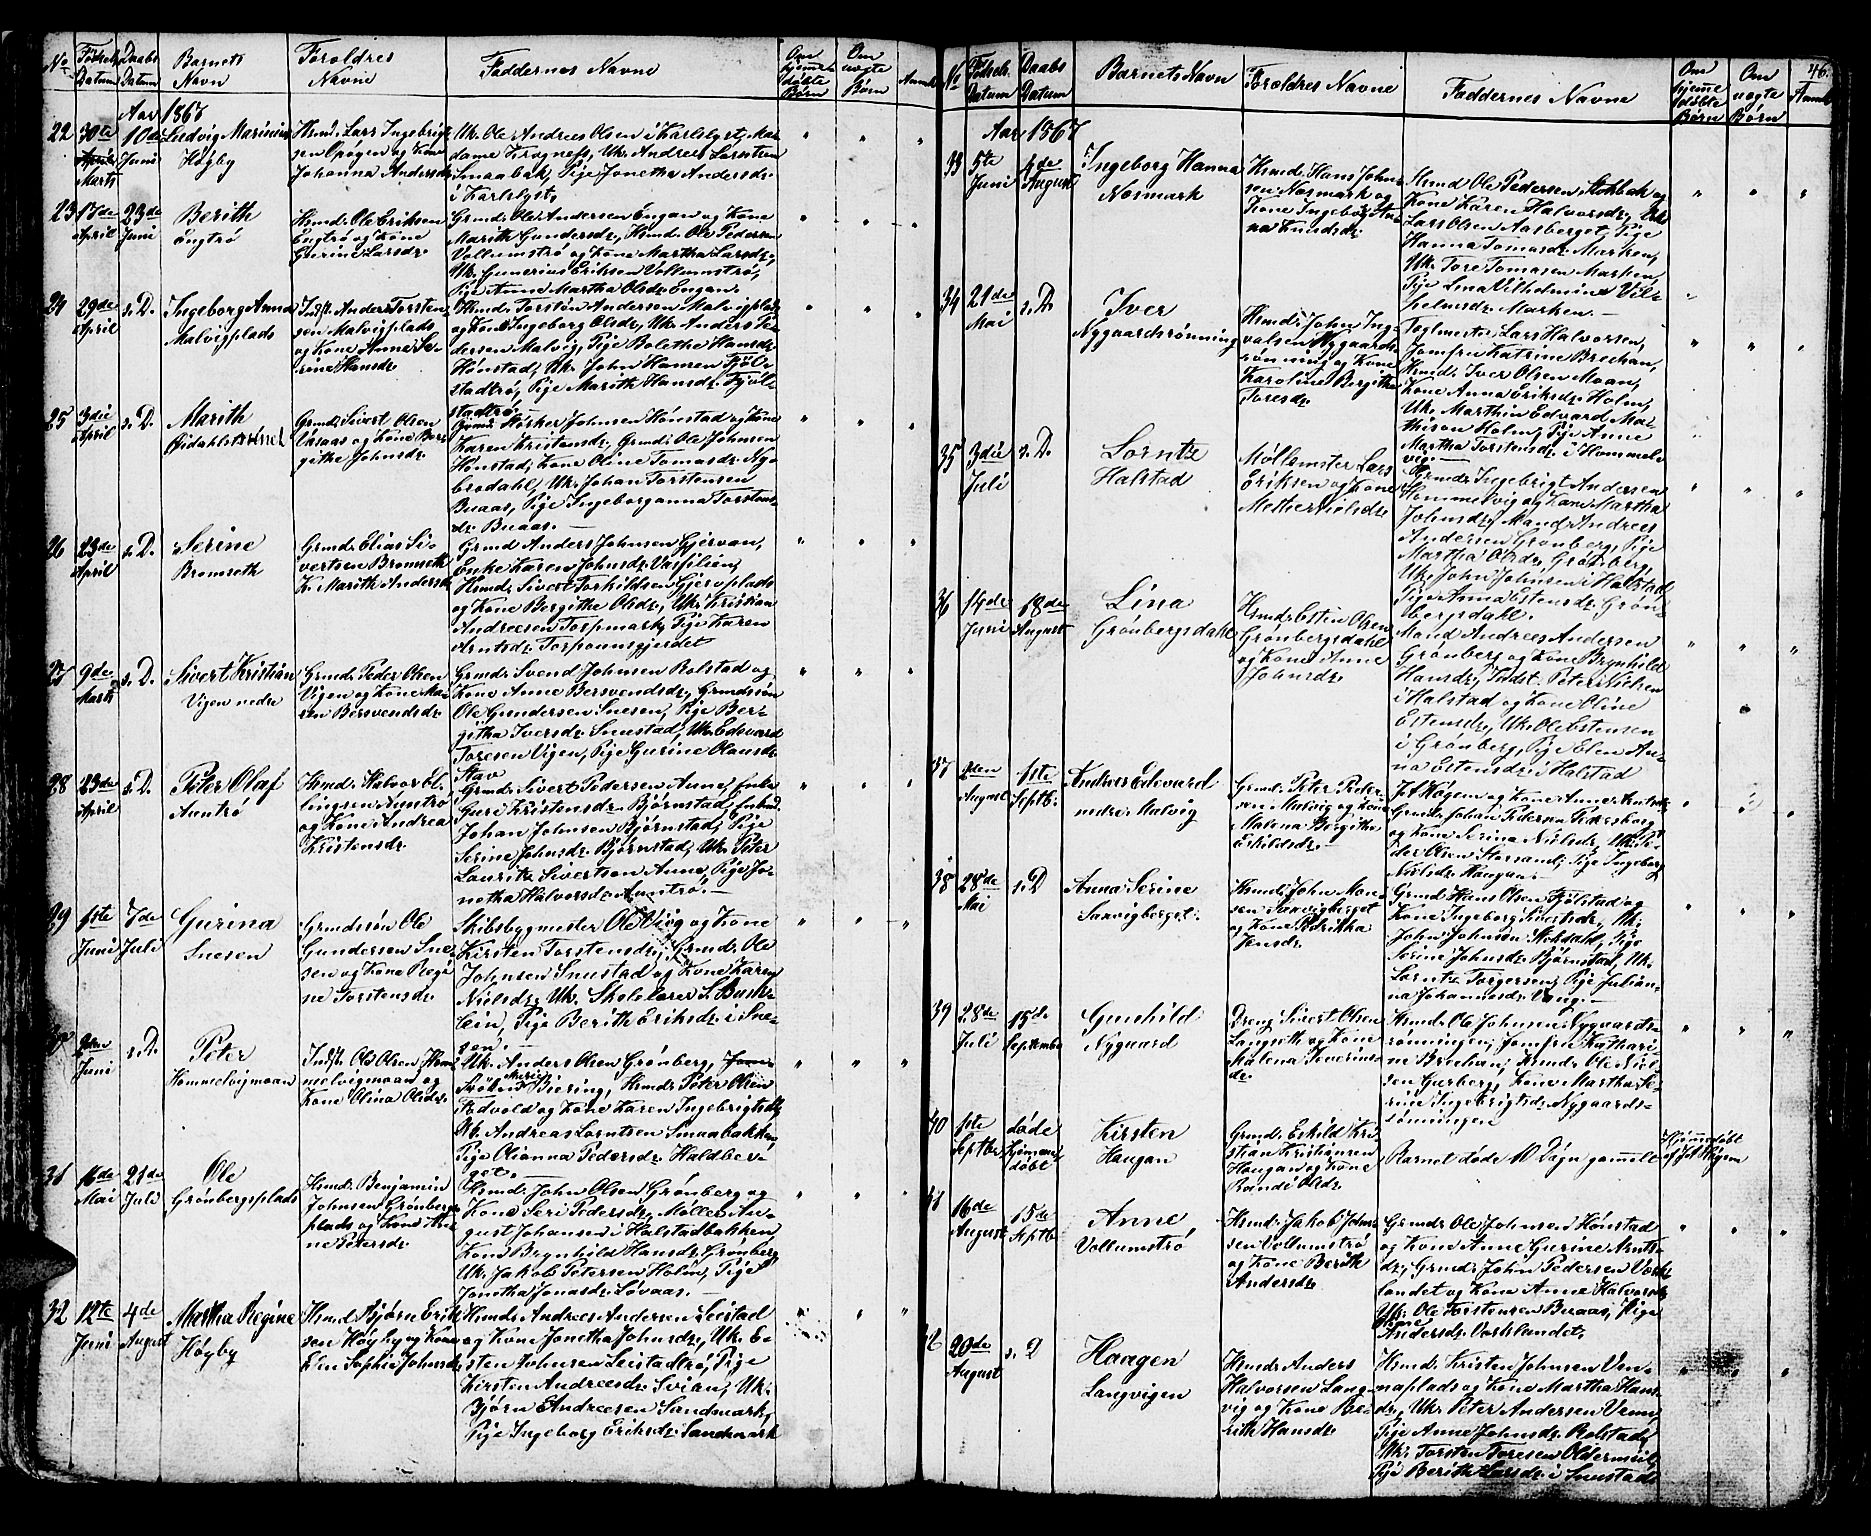 No
Fødsels Datum
Daabs Datum
Barnets Navn
Foroldres Navne
Faddernes Navne
Om hjemme døbte Børn
Om uægte Børn
Anmk
Aar 1867
22 30te April Marts
10de Juni
Ludvig Marinius
Høgby
Hsmd. Lars Ingebrigt-
sen Opøgen og Kone
Johanna Andersdr.
Uk. Ole Andreas Olsen i Karlslyst, Ma-
dame Krogness, Uk. Andreas Lorntsen
Smaabak, Pige Jonetha Andersdr.
i Karlslyst,
23 17de April
23de Juni
Berith
Engtrø
Hsmd. Ole Eriksen
Engtrø og Kone
Gurine Larsdr.
Grmd. Ole Andersen Engan og Kone
Marith Gundersdr., Hsmd. Ole Pedersen
Vollumstrø og Kone Martha Larsdr.,
Uk. Gunerius Eriksen Vollumstrø,
Pige Anne Martha Olsdr. Engan.
24 29de April
s. D.
Ingeborg Anna
Malvigplads
Indst. Anders Torsten-
sen Malvigplads
og Kone Anna Se-
rine Hansdr.
Hsmd. Torsten Andersen Malvigplads
og Kone Ingeborg Olsdr., Uk. Anders Pe-
dersen Malvig, Pige Bolethe Hansdr.
Hønstad, Uk. John Hansen Fjøl-
stadtrø, Pige Marith Hansdr. Fjøl-
stadtrø. —
25 3die April
s. D.
Marith
Grmd. Sivert Olsen
og Kone Ber-
githe Johnsdr.
Grmd. Høsker Johnsen Hønstad og Kone
Karen Kristensdr., Grmd. Ole Johnsen
Hønstad, Kone Oline Tomasdr. Ny-
brodahl, Uk. Johan Torstensen
Buaas, Pige Ingeborganna Torstens-
dr. Buaas. —
26 23de April
s. D.
Serine
Bromseth
Grmd. Elias Si-
vertsen Bromseth
K. Marith Andersdr.
Grmd Anders Johnsen Gjervan,
Enke Karen Johnsdr. Vasfilien,
Hsmd. Sivert Torkildsen Gjervplads
og Kone Bergithe Olsdr., Uk. Kristian
Andreasen Torpmark, Pige Karen
Arntsdr. Torpounsgjerdet
27 9de Marts
s. D.
Sivert Kristian
Vigen nedre
Grmd. Peder Olsen
Vigen og Kone Ma-
ren Bersvendsdr.
Grmd. Svend Johnsen Rolstad og
Kone Anne Bersvendsdr., Grmdssøn
Ole Gundersen Snesen, Pige Ber-
githa Iversdr. Snustad, Uk. Edevard
Toresen Vigen, Pige Gurine Olausdr.
Stav
28 23de April
s. D.
Peter Olaf
Auntrø
Hsmd. Halvor El-
lingsen Auntrø
og Kone Andrea
Kristensdr.
Grmd. Sivert Pedersen Aune, Enke
Guri Kristensdr. Bjørnstad,
Johan Johnsen Bjørnstad, Pige
Serine Johnsdr. Bjørnstad, Uk. Peter
Lauritz Sivertsen Aune, Pige Jo-
netha Halvorsdr. Auntrø. —
29 1ste Juni
7de Juli
Gurina
Snesen
Grmdssøn Ole
Gundersen Sne-
sen og Kone Regi-
ne Torstensdr.
Skibsbygmester Ole Viig og Kone
Kirsten Torstensdr., Grmd. Ole
Johnsen Snustad og Kone Karen
Nielsdr., Uk. Skolelærer S. Bush-
lein, Pige Berith Eriksdr. i Sne-
sen. —
30 2den Juni
s. D.
Peter
Hommelvigmoan
Indst. Ole Olsen Hom-
melvigmoan og
Kone Olina Olsdr.
Uk. Anders Olsen Grønberg,
Biering, Hsmd. Peter Olsen
Fædvold og Kone Karen Ingebrigtsdr.
Uk. Andreas Lorntsen Smaabakken,
Pige Olianna Pedersdr. Haldber-
get.
31 16de Mai
21de Juli
Ole
Grønbergsplads
Hsmd. Benjamin
Johnsen Grønbergs-
plads og Kone An-
ne Petersdr.
Hsmd. John Olsen Grønberg og
Kone Seri Pedersdr., Møller Au-
gust Johansen i Halstadbakken,
Kone Brynhild Hansdr. Grønberg
Uk. Jakob Petersen Holm, Pige
Jonetha Jonasdr. Løvaas. —
32 12te Juni
4de August
Martha Regine
Høgby
Hsmd Asbjørn Erik-
sen Høgby og Kone
Elen Sophie Johnsdr.
Hsmd. Andreas Andersen Leistad
og Kone Jonetha Johnsdr., Uk. E-
sten Johnsen Leistadtrø, Pige
Kirsten Andreasdr. Svian, Uk.
Bjørn Andreasen Sandmark,
Pige Ingeborg Eriksdr. Sandmark
46.
No
Fødsels Datum
Daabs Datum
Barnets Navn
Foroldres Navne
Faddernes Navne
Om hjemme døbte Børn
Om uægte Børn
Anmk
Aar 1867
33 5te Juni
4de August
Ingeborg Hanna
Nosmark
Hsmd. Hans John-
sen Nosmark og
Kone Ingeborg An-
na Knudsdr.
Hsmd Ole Pedersen Stokbak og
Kone Karen Halvorsdr.,
Lars Olsen Aasberget, Pige
Hanna Tomasdr. Marken,
Uk. Tore Tomasen Marken,
Pige Lina Vilhelmine Vil-
helmsdr. Marken. —
34 21de Mai
s. D.
Iver
Nygaardsrønning
Hsmd. John Ing-
valsen Nygaards-
rønning og Kone
Karoline Bergithe
Toresdr.
Teglmester Lars Halvorsen,
Jomfru Katrine Brechan,
Hsmd. Iver Olsen Moan,
Kone Anna Eriksdr. Holm,
Uk. Marthin Edvard Ma-
thison Holm, Pige Anne
Martha Torstensdr. i Hommel-
vig. —
35 3die Juli
s. D.
Lorntz
Halstad
Møllemster Lars
Eriksen og Kone
Methe Nielsdr
Hsmd. Ingebrigt Andersen
Hommelvig og Kone Martha
Johnsdr., Mand Andreas
Andersen Grønberg, Pige
Martha Olsdr. Grønberg,
Uk. John Johnsen i Halstad
Pige Anna Estensdr. Grøn-
bergsdahl.
36 14de Juni
18de August
Lina
Grønbergsdahl
Hsmd. Esten Olsen
Grønbergsdahl
og Kone Anne
Johnsdr.
Mand Andreas Andersen
Grønberg og Kone Brynhild
Hansdr., Indst. Peter Nielsen
i Halstad og Kone Oline
Estensdr., Uk. Ole Estensen
i Grønberg, Pige Elen An-
na Estensdr. i Halstad
37 2den August
1ste Septbr.
Andreas Edevard
nedre Malvig
Grmd. Peter Peder-
sen Malvig og Kone
Malena Bergithe
Eskildsdr. —
J. A. Høgen og Kone Anne
Grmd. Johan Pedersen
og Kone Serina Nielsdr.,
der Olsen Storsand, Pige Ingeborg
Nielsdr. Haugan. —
38 28de Mai
s. D
Anna Serine
Saxvigberget
Hsmd. John Mon-
sen Saxvigberget
og Kone Hedrikka
Jensdr.
Grmd. Hans Olsen Fjølstad og
Kone Ingeborg Sivertsdr., Uk.
John Johnsen Stokdahl, Pige
Serine Johnsdr. Bjørnstad, Uk.
Lorntz Torgersen, Pige Julian-
na Johannesdr. Vang. —
39 28de Juli
15de September
Gunhild
Nygaard
Dreng Sivert Olsen
Langseth og Kone
Malena Severine-
dr.
Hsmd. Ole Johnsen Nygaards-
rønningen, Jomfru Kathari-
ne Brechan, Hsmd. Ole Niel-
sen Gurberg, Kone Martha Se-
rine Ingebrigtsdr. Nygaards-
rønningen
40 1ste Septbr.
døde hjemme døbt
Kirsten
Haugan
Grmd. Eskild Kri-
stian Kristiansen
Haugan og Kone
Randi Olsdr.
Barnet døde 10 Dagn gammelt
Hjemmedøbt af J. A. Høgen
41 16de August
15de Septbr
Anne
Vollumstrø
Hsmd. Jakob John-
sen Vollumstrø
og Kone Berith
Andersdr.
Grmd. Ole Johnsen i Hønstad
og Kone Anne Gurine Arnts-
dr., Grmd. John Pedersen Vork-
landet og Kone Anne Halvorsdr.
Uk. Ole Torstensen Buaas, Pige
Andersdr. Vorklandet.
42 20de August
s. D
Haagen
Langvigen
Hsmd. Anders
Halvorsen Lang-
vig og Kone Be-
rith Hansdr.
Hsmd. Kristen Johnsen Ven-
naplads og Kone Martha Hans-
dr., Uk. Peter Andersen Venne,
Pige Anne Johnsdr. Rolstad,
Uk. Torsten Toresen Oldermeil,
Pige Berith Larsdr. i Snustad.